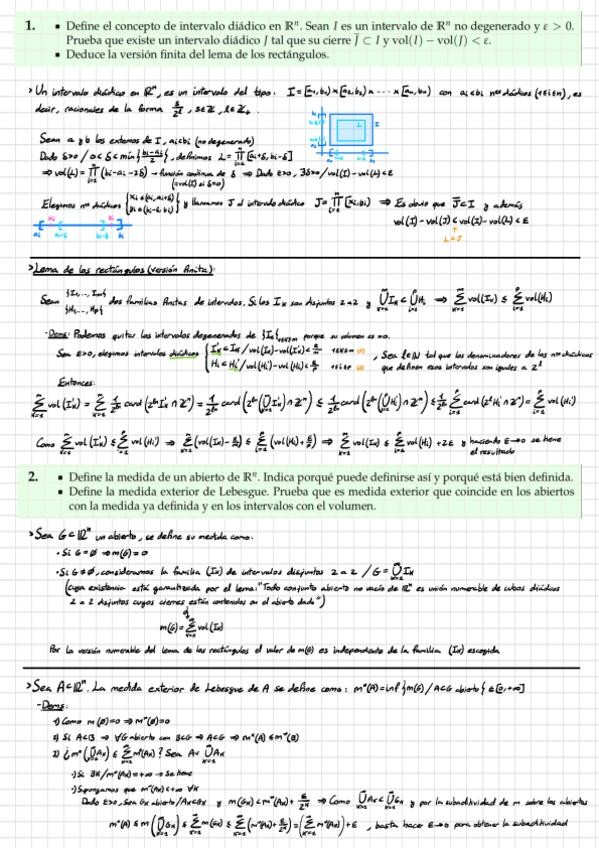 1. ▪ Define el concepto de intervalo diádico en ℝⁿ. Sean I es un intervalo de ℝⁿ no degenerado y ε > 0.
Prueba que existe un intervalo diádico J tal que su cierre J̅ ⊂ I y vol(I) − vol(J) < ε.
▪ Deduce la versión finita del lema de los rectángulos.
> Un intervalo diádico en ℝⁿ, es un intervalo del tipo: I = [a₁,b₁) × [a₂,b₂) × ··· × [aₙ,bₙ) con aᵢ<bᵢ nºˢ diádicos (1≤i≤n), es
decir, racionales de la forma s/2^l, s∈ℤ, l∈ℤ₊
Sean a y b los extremos de I, aᵢ<bᵢ (no degenerado)
Dado δ>0 / 0<δ<min{(bᵢ-aᵢ)/2}, definimos L = ∏ [aᵢ+δ, bᵢ-δ]
⇒ vol(L) = ∏ (bᵢ-aᵢ-2δ) → función continua de δ ⇒ Dado ε>0, ∃δ>0 / vol(I)-vol(L)<ε
(=vol(I) si δ=0)
Elegimos nºˢ diádicos {xᵢ∈(aᵢ,aᵢ+δ) yᵢ∈(bᵢ-δ,bᵢ)} y llamamos J al intervalo diádico J = ∏ [xᵢ,yᵢ) ⇒ Es obvio que J̅⊂I y además
vol(I)-vol(J) < vol(I)-vol(L) < ε
L⊂J
> Lema de los rectángulos (versión finita):
Sean {I₁,...,Iₘ} {H₁,...,Hₚ} dos familias finitas de intervalos. Si los Iₖ son disjuntos 2 a 2 y ⋃Iₖ ⊂ ⋃Hᵢ ⇒ ∑ vol(Iₖ) ≤ ∑ vol(Hᵢ)
- Dem: Podemos quitar los intervalos degenerados de {Iₖ}₁≤ₖ≤ₘ porque su volumen es =0.
Sea ε>0, elegimos intervalos diádicos {I'ₖ⊂Iₖ / vol(Iₖ)-vol(I'ₖ)<ε/m 1≤k≤m Hᵢ⊂H'ᵢ / vol(H'ᵢ)-vol(Hᵢ)<ε/p 1≤i≤p, Sea l∈ℕ tal que los denominadores de los nºˢ diádicos
que definen esos intervalos son iguales a 2^l
Entonces:
∑ vol(I'ₖ) = ∑ 1/2^{ln} card(2^l I'ₖ ∩ ℤⁿ) = 1/2^{ln} card(2^l(⋃I'ₖ) ∩ ℤⁿ) ≤ 1/2^{ln} card(2^l(⋃H'ᵢ) ∩ ℤⁿ) ≤ 1/2^{ln} ∑ card(2^l H'ᵢ ∩ ℤⁿ) = ∑ vol(H'ᵢ)
Como ∑ vol(I'ₖ) ≤ ∑ vol(H'ᵢ) ⇒ ∑ (vol(Iₖ)-ε/m) ≤ ∑ (vol(Hᵢ)+ε/p) ⇒ ∑ vol(Iₖ) ≤ ∑ vol(Hᵢ) + 2ε y haciendo ε→0 se tiene
el resultado
2. ▪ Define la medida de un abierto de ℝⁿ. Indica porqué puede definirse así y porqué está bien definida.
▪ Define la medida exterior de Lebesgue. Prueba que es medida exterior que coincide en los abiertos
con la medida ya definida y en los intervalos con el volumen.
> Sea G⊂ℝⁿ un abierto, se define su medida como:
· Si G=∅ ⇒ m(G)=0
· Si G≠∅, consideramos la familia (Iₖ) de intervalos disjuntos 2 a 2 / G = ⋃Iₖ
(cuya existencia está garantizada por el lema: "Todo conjunto abierto no vacío de ℝⁿ es unión numerable de cubos diádicos
2 a 2 disjuntos cuyos cierres están contenidos en el abierto dado")
m(G) = ∑ vol(Iₖ)
Por la versión numerable del lema de los rectángulos el valor de m(G) es independiente de la familia (Iₖ) escogida
> Sea A⊂ℝⁿ. La medida exterior de Lebesgue de A se define como: m*(A) = inf{m(G) / A⊂G abierto} ∈ [0,+∞]
- Dem:
1) Como m(∅)=0 ⇒ m*(∅)=0
2) Si A⊂B ⇒ ∀G abierto con B⊂G ⇒ A⊂G ⇒ m*(A) ≤ m*(B)
3) ¿m*(⋃Aₖ) ≤ ∑ m*(Aₖ)? Sea A = ⋃Aₖ
·) Si ∃k / m*(Aₖ)=+∞ → Se tiene
·) Supongamos que m*(Aₖ)<+∞ ∀k
Dado ε>0, Sea Gₖ abierto / Aₖ⊂Gₖ y m(Gₖ) < m*(Aₖ) + ε/2^k ⇒ Como ⋃Aₖ ⊂ ⋃Gₖ y por la subaditividad de m sobre los abiertos
m*(A) ≤ m(⋃Gₖ) ≤ ∑ m(Gₖ) ≤ ∑ (m*(Aₖ) + ε/2^k) = (∑ m*(Aₖ)) + ε, basta hacer ε→0 para obtener la subaditividad